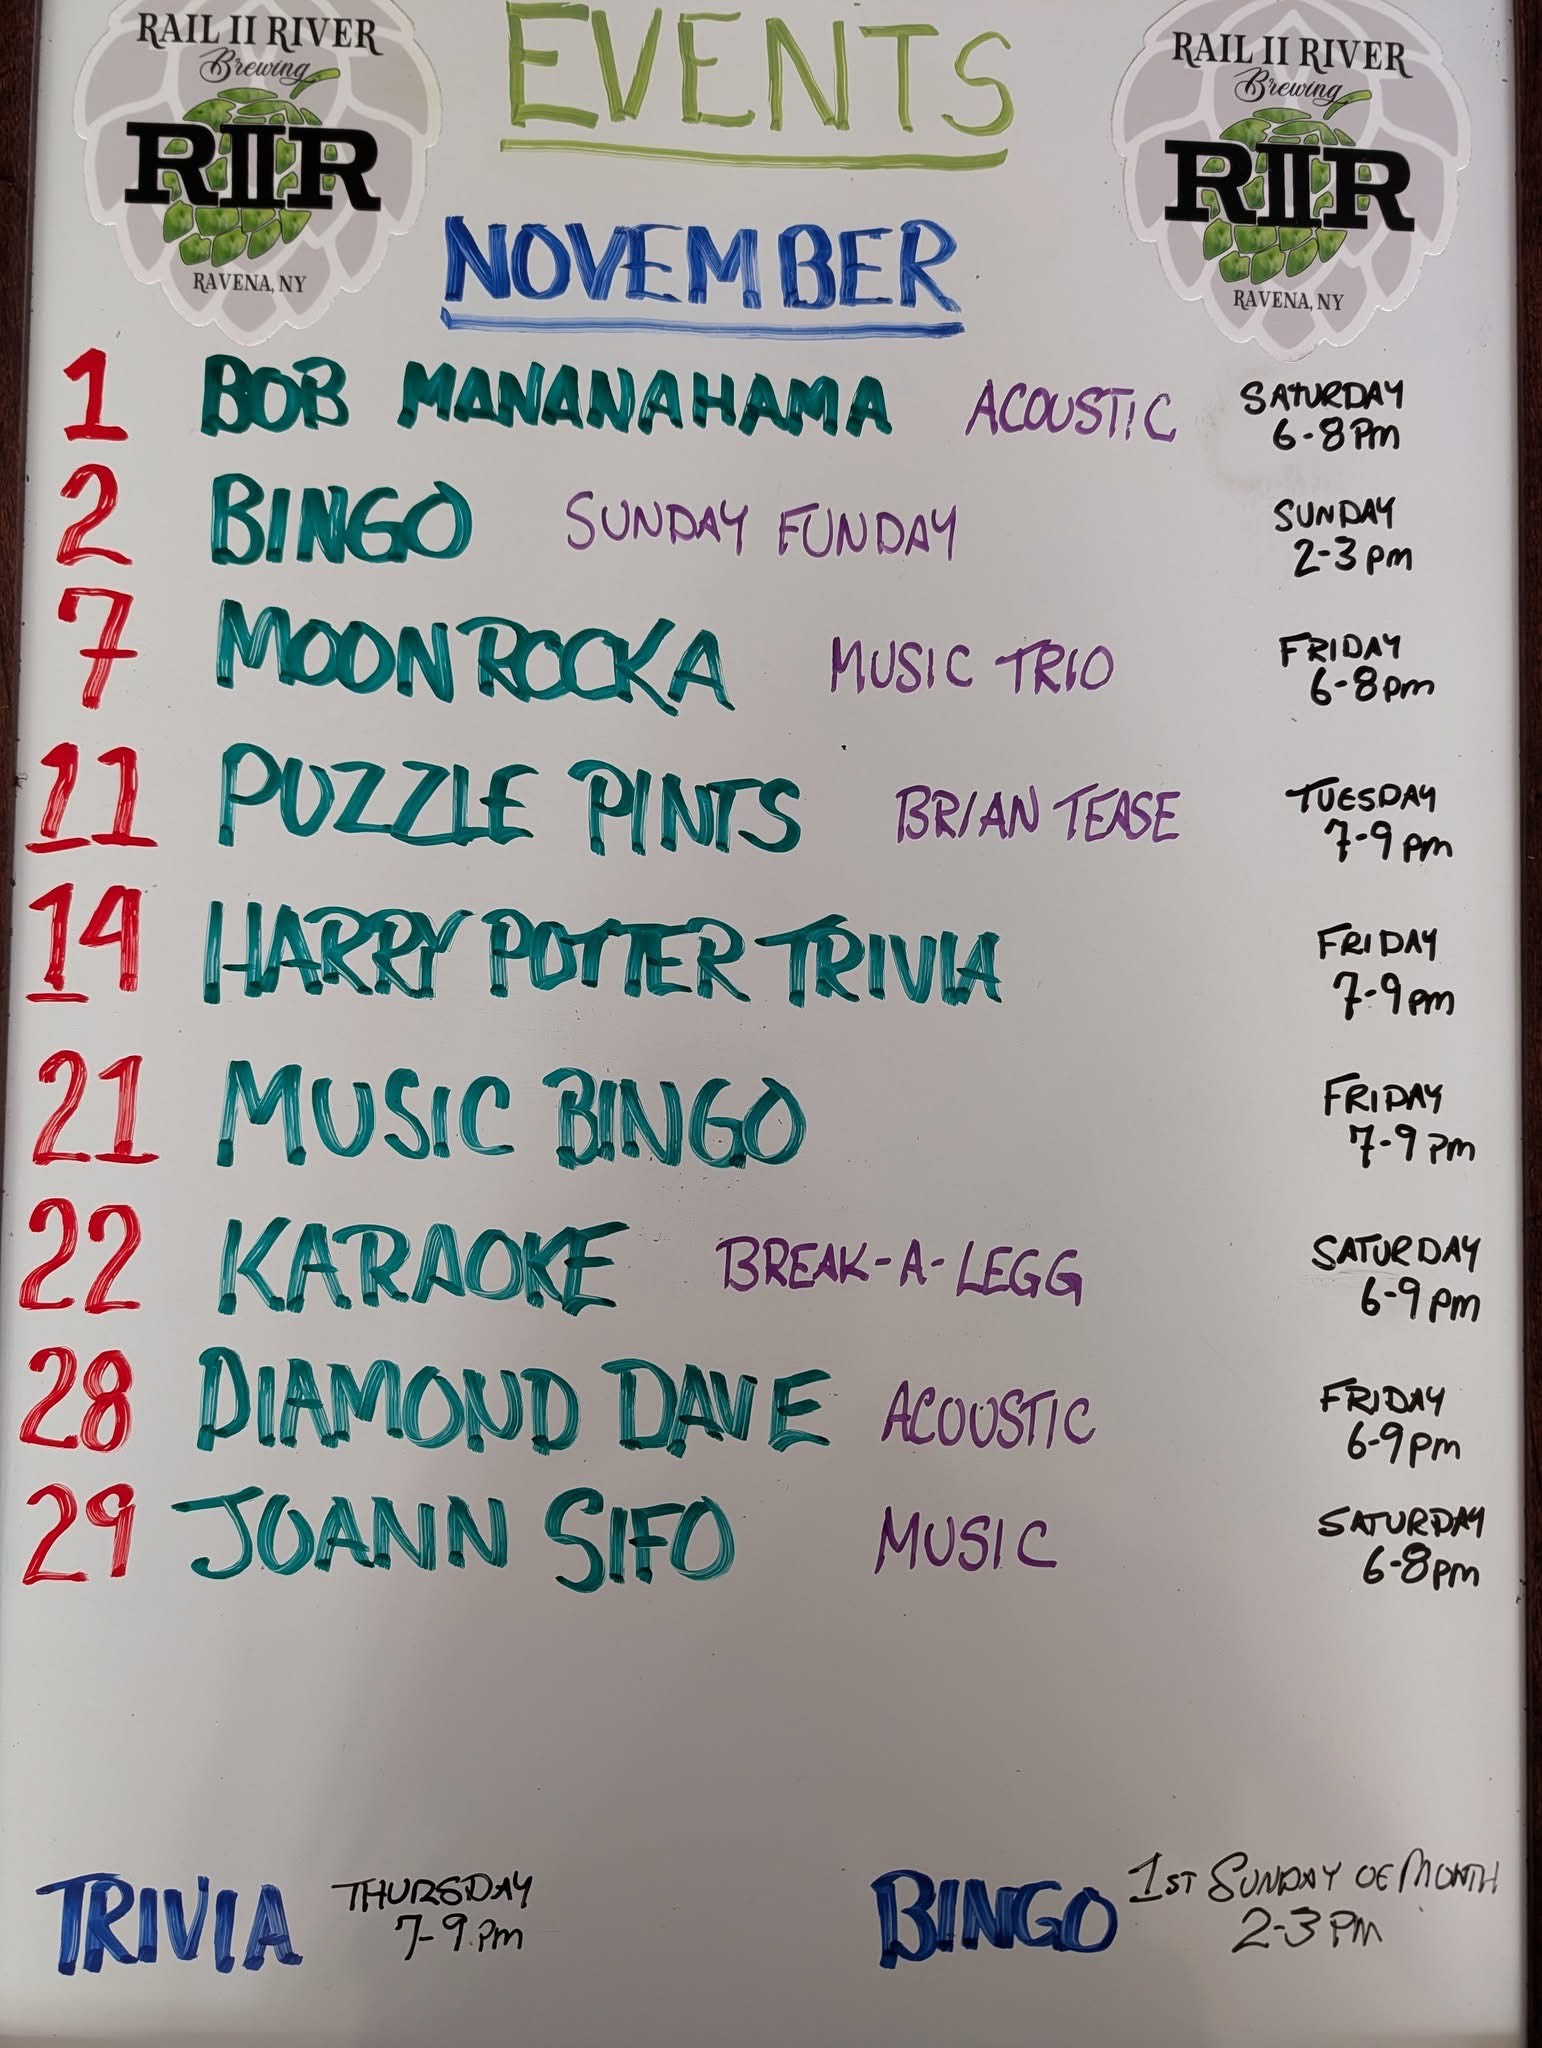 RAIL II RIVER
Brewing
RIIR
RAVENA, NY
EVENTS
RAIL II RIVER
Brewing
RIIR
RAVENA, NY
NOVEMBER
1 BOB MANANAHAMA ACOUSTIC SATURDAY
6-8PM
2 BINGO SUNDAY FUNDAY SUNDAY
2-3pm
7 MOONROCKA MUSIC TRIO FRIDAY
6-8pm
11 PUZZLE PINTS BRIAN TEASE TUESDAY
7-9pm
14 HARRY POTTER TRIVIA FRIDAY
7-9pm
21 MUSIC BINGO FRIDAY
7-9pm
22 KARAOKE BREAK-A-LEGG SATURDAY
6-9pm
28 DIAMOND DAVE ACOUSTIC FRIDAY
6-9pm
29 JOANN SIFO MUSIC SATURDAY
6-8pm
TRIVIA THURSDAY
7-9pm
BINGO 1ST SUNDAY OF MONTH
2-3PM